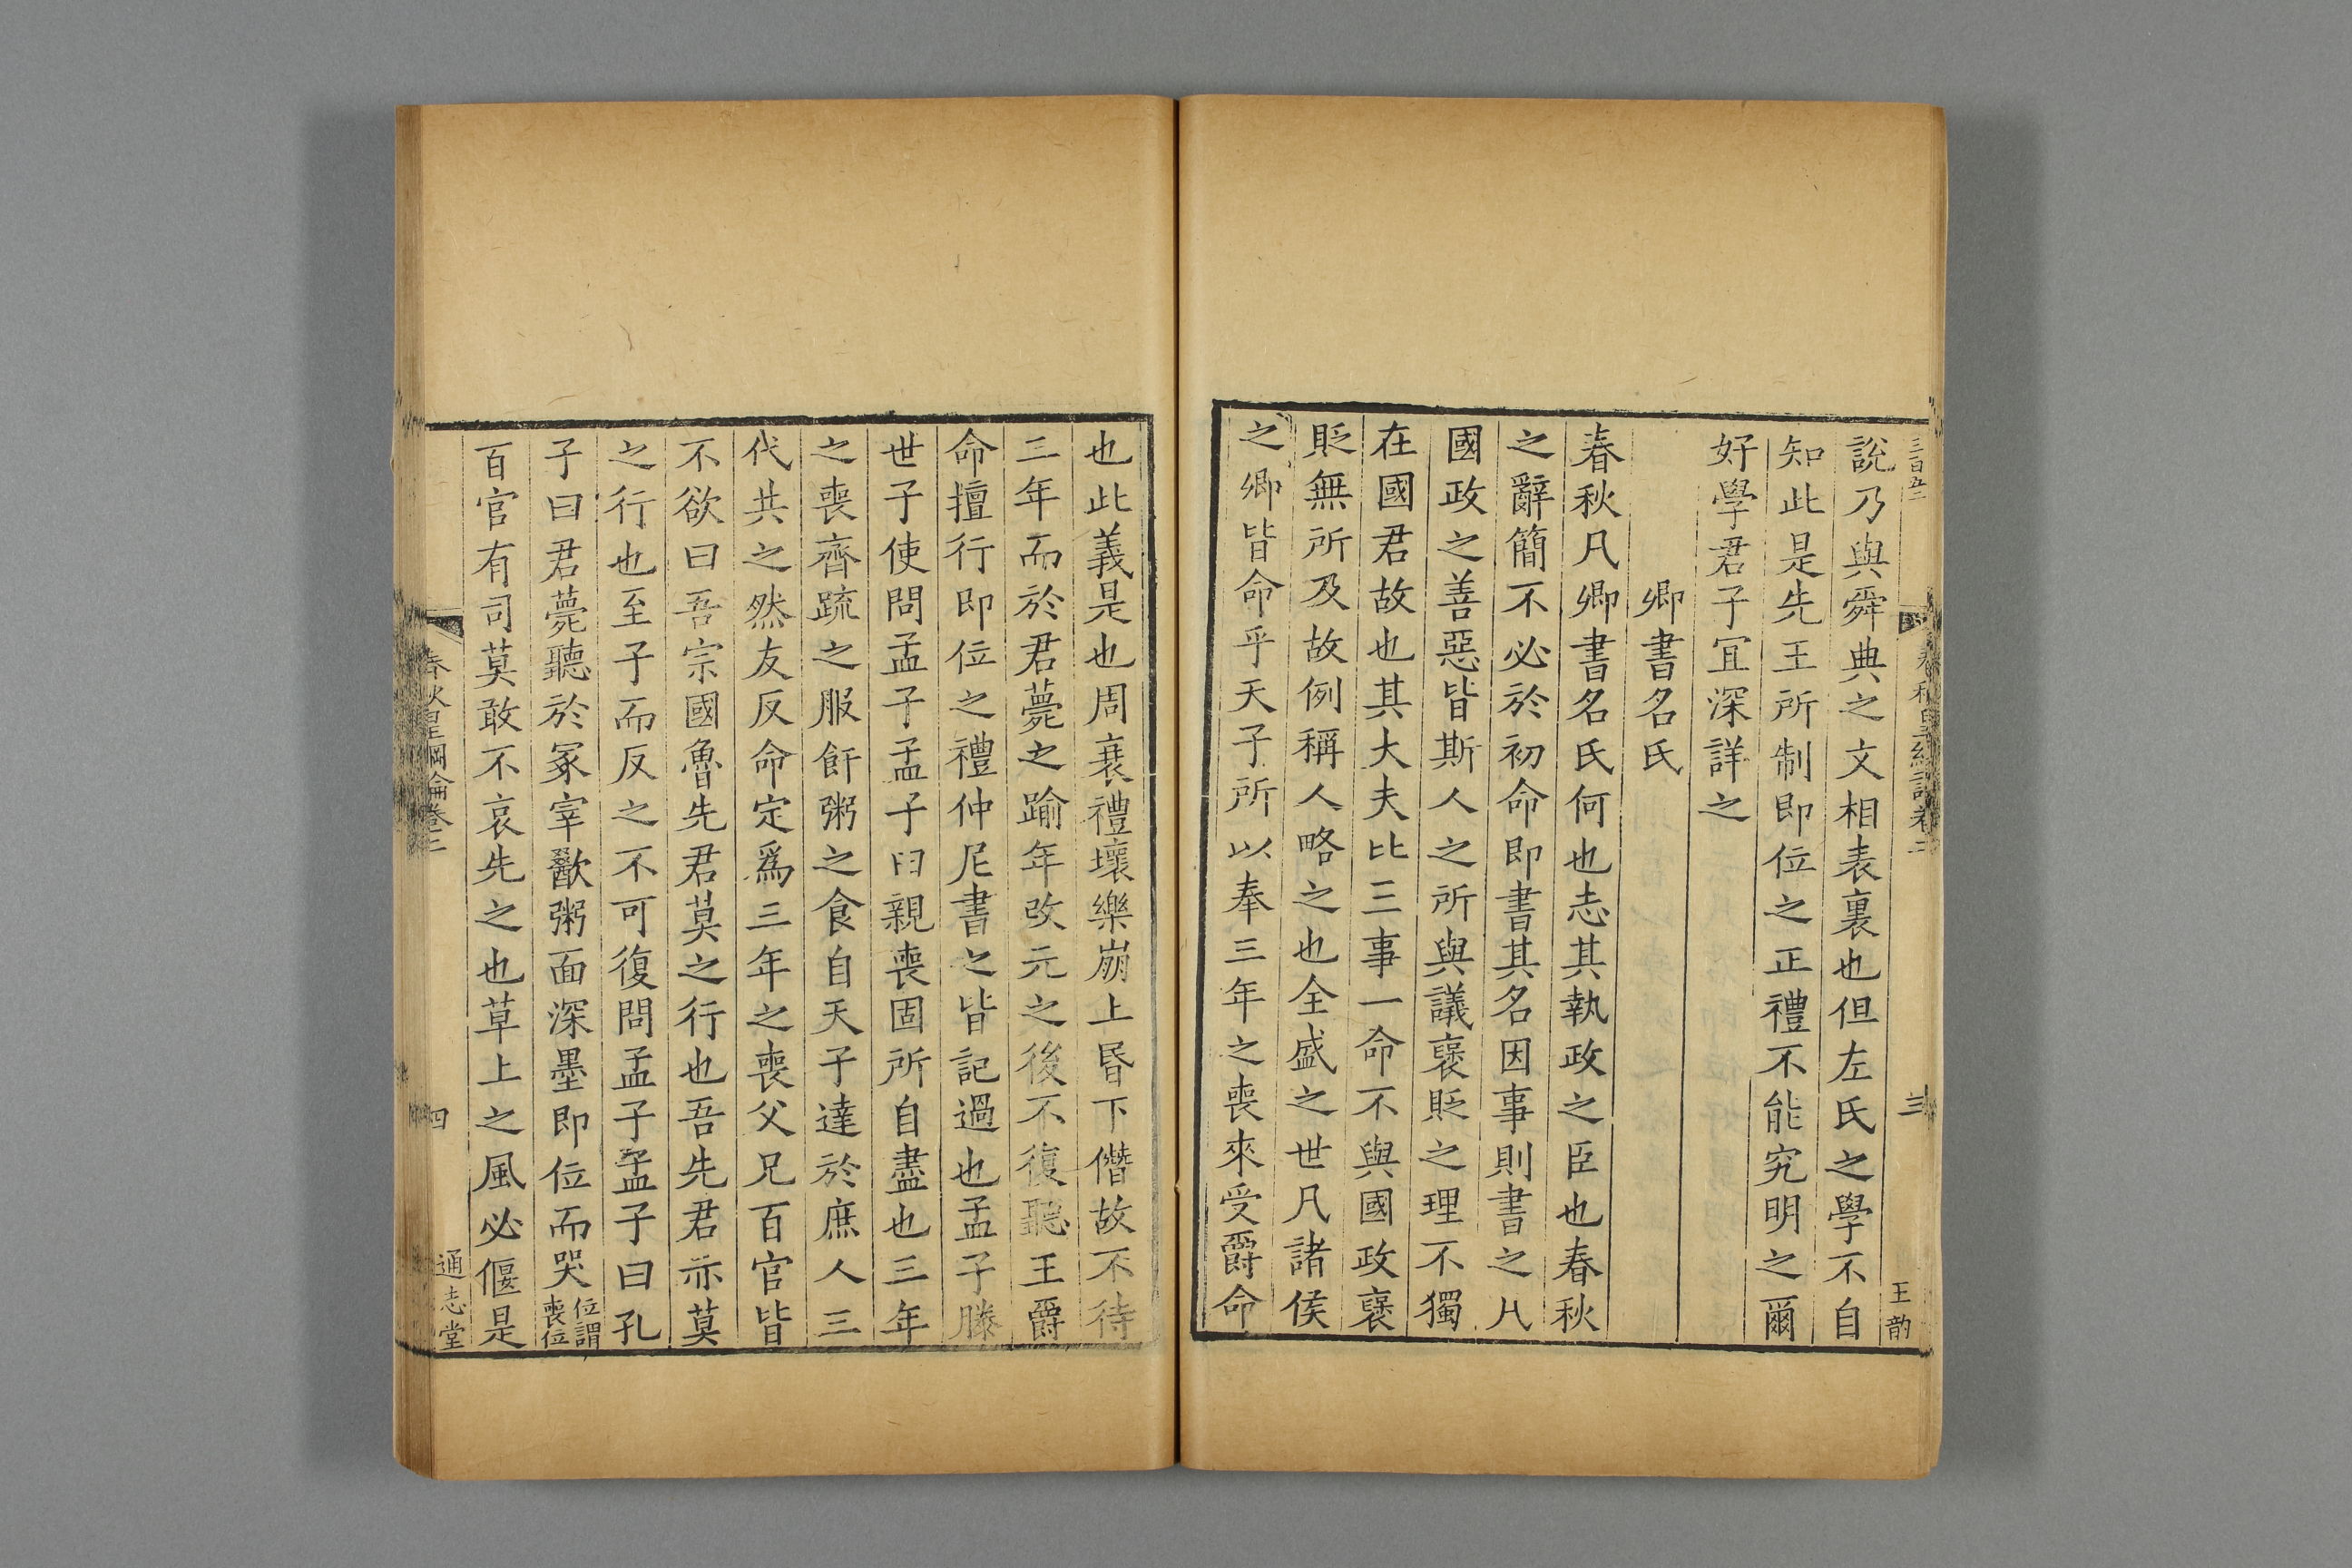 三百五二
春秋皇綱論卷二
三
王韵
說乃與舜典之文相表裏也但左氏之學不自
知此是先王所制即位之正禮不能究明之爾
好學君子冝深詳之
卿書名氏
春秋凡卿書名氏何也志其執政之臣也春秋
之辭簡不必於初命即書其名因事則書之凡
國政之善惡皆斯人之所與議褒貶之理不獨
在國君故也其大夫比三事一命不與國政褒
貶無所及故例稱人略之也全盛之世凡諸侯
之卿皆命乎天子所以奉三年之喪來受爵命
也此義是也周衰禮壞樂崩上昬下僭故不待
三年而於君薨之踰年改元之後不復聽王爵
命擅行即位之禮仲尼書之皆記過也孟子滕
世子使問孟子孟子曰親喪固所自盡也三年
之喪齊疏之服飦粥之食自天子達於庶人三
代共之然友反命定爲三年之喪父兄百官皆
不欲曰吾宗國魯先君莫之行也吾先君亦莫
之行也至子而反之不可復問孟子孟子曰孔
子曰君薨聽於冢宰歠粥面深墨即位而哭位謂喪位
百官有司莫敢不哀先之也草上之風必偃是
春秋皇綱論卷二
四
通志堂